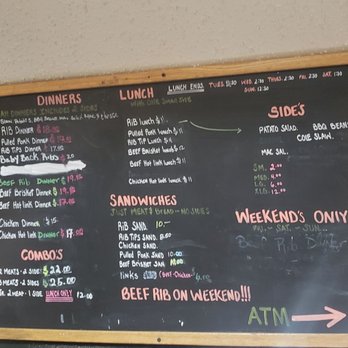 DINNERS
ALL DINNERS INCLUDES 2 SIDES
RIB DINNER $18.
Pulled Pork Dinner $17.
RIB TIPS DINNER $17.
Baby Back Rubs
Beef Rib Dinner $19.
Beef Brisket Dinner $19.
Beef Hot Link Dinner $17.
Chicken Dinner $15
Chicken Hot Link Dinner $17.00
COMBO'S
2 MEATS - 2 SIDE $22.00
3 MEATS - 2 SIDE $25.00
1 MEAT - 1 SIDE LUNCH ONLY 12.00
LUNCH
LUNCH ENDS TUES. WED. 2:30 THUR. 2:30 FRI. 2:30 SAT. 1:30
SUN. 12:30
WITH ONE SMALL SIDE
RIB lunch $11
Pulled Pork lunch $11
RIB TIPS Lunch $11
Beef Brisket lunch $11
Beef Hot Link lunch $11
Chicken Hot Link lunch $11
SANDWICHES
JUST MEAT & BREAD - NO SIDES
RIB SAND. 10.
RIB TIPS SAND.
Chicken SAND
Pulled Pork SAND 10.00
Beef Brisket SAN 10.00
links (Beef-Chicken)
BEEF RIB ON WEEKEND!!!
SIDE'S
POTATO SALAD. BBQ BEANS
COLE SLAW.
MAC SAL.
SM.
MED.
LG.
XLG.
WEEKEND'S ONLY
FRI. - SAT. - SUN.
Beef Rib Dinner
ATM